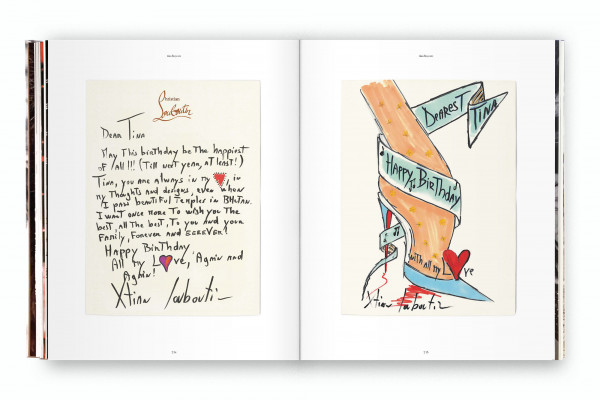 Christian
Louboutin
Dear Tina
May This birthday be the happiest
of all!! (Till next year, at least!)
Tina, you are always in my
, in
my Thoughts and designs, even when
I pass beautiful Temples in Bhutan.
I want once more To wish you The
best, all the best, To you and your
Family, Forever and EEREVER!
Happy Birthday
All my L ve, Again and
Again!
Xtian Louboutin
DEAREST
TINA
HAPPY BIRTHDAY
with all my
ve
Xtian Louboutin